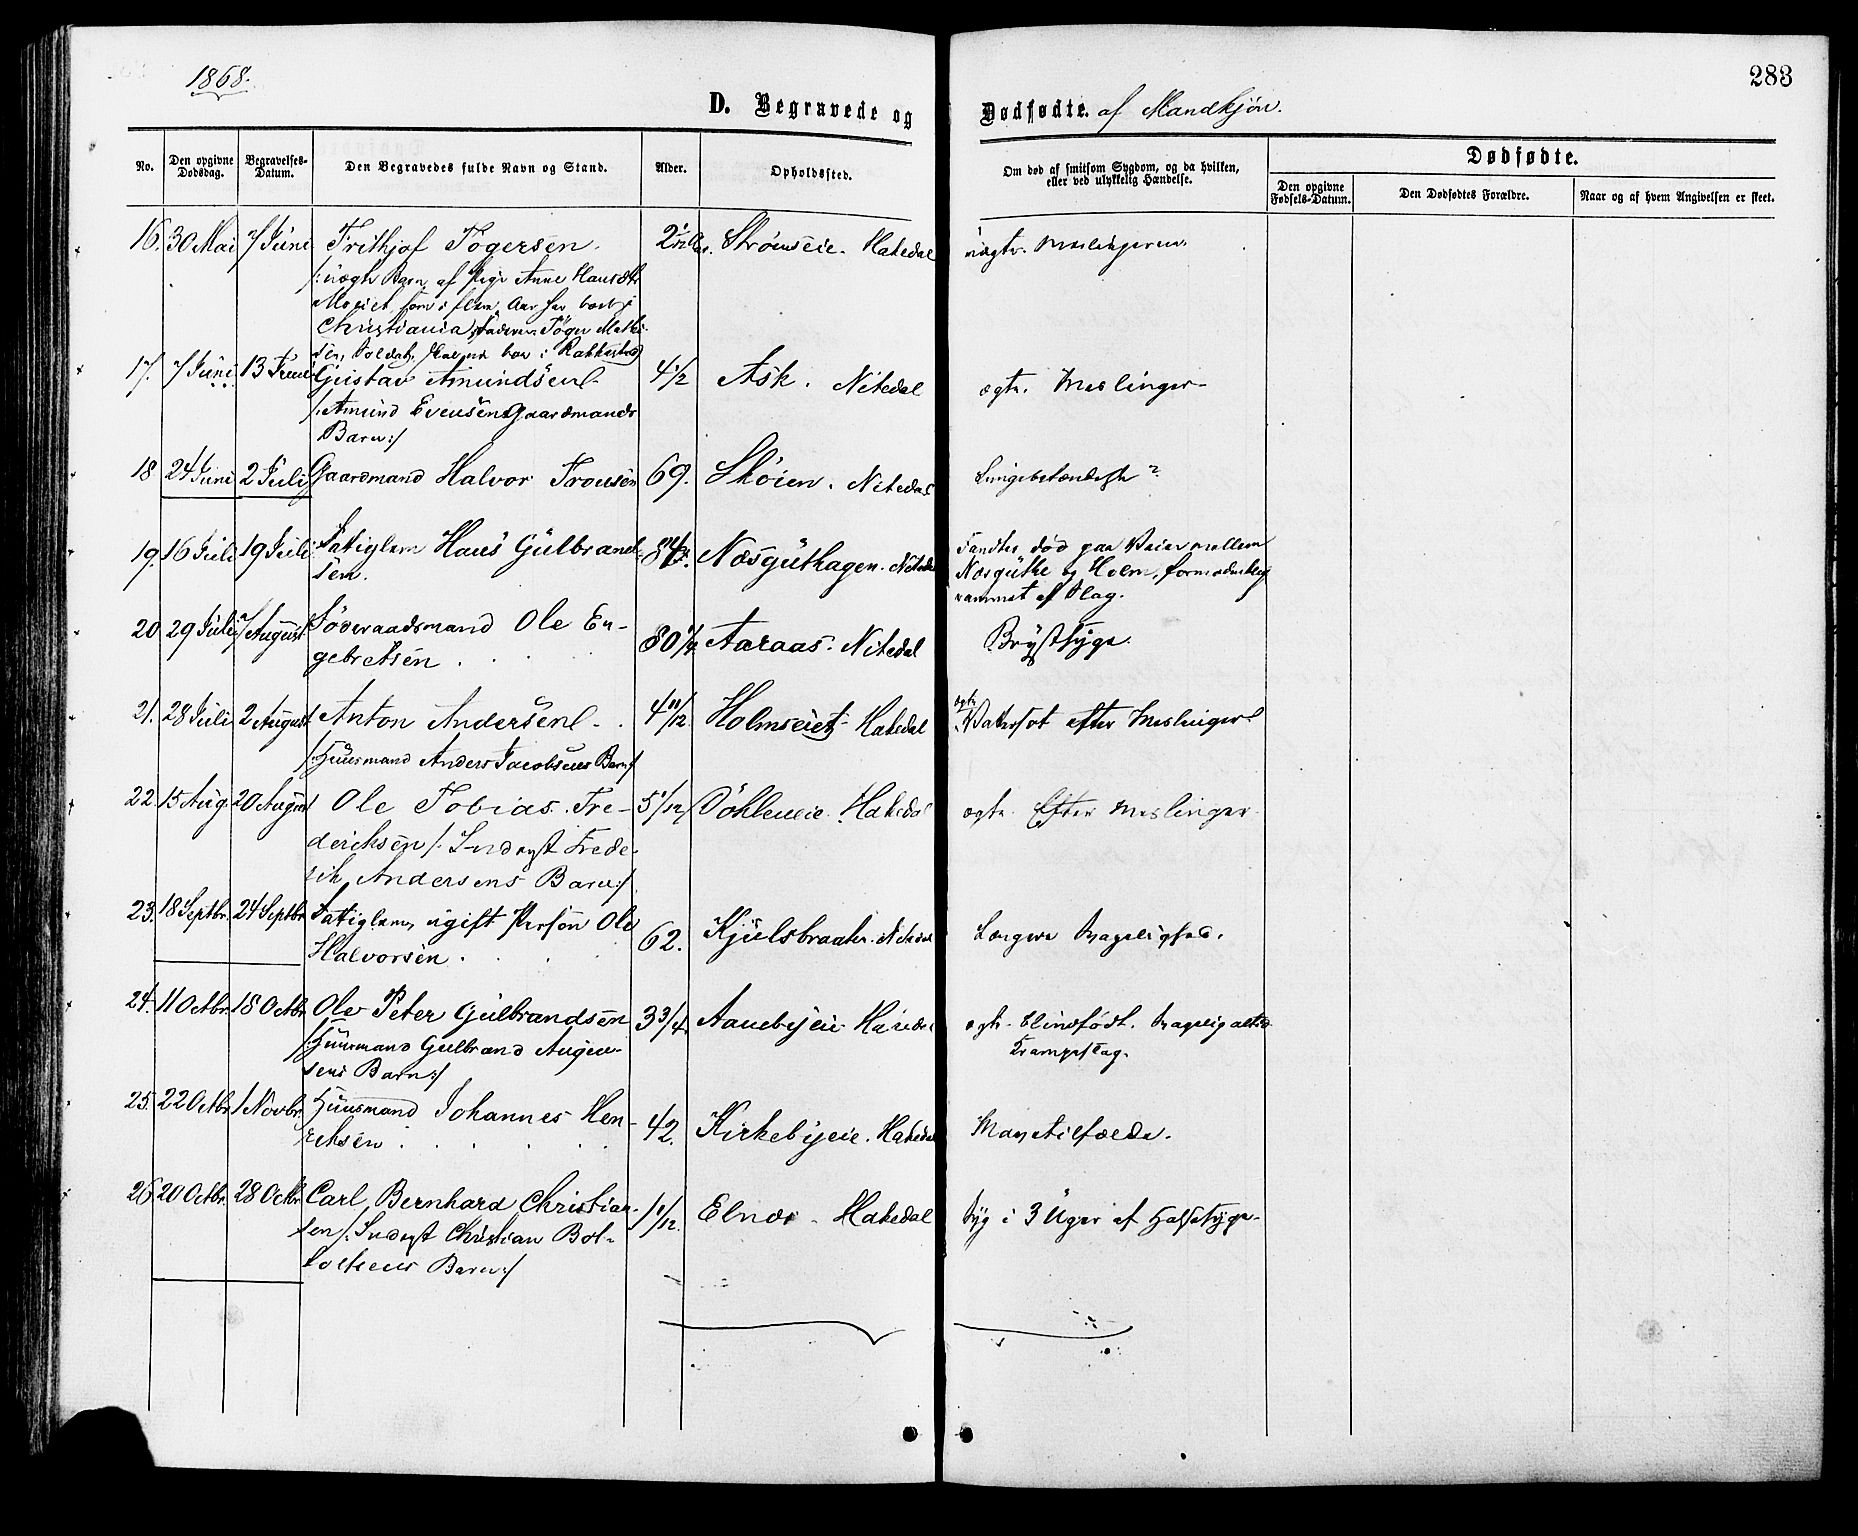 1868.
283
D. Begravede og Dødfødte. af Mandkjøn.
No.
Den opgivne Dødsdag.
Begravelses-Datum.
Den Begravedes fulde Navn og Stand.
Alder.
Opholdssted.
Om død af smitsom Sygdom, og da hvilken, eller ved ulykkelig Hændelse.
Dødfødte.
Den opgivne Fødsels-Datum.
Den Dødfødtes Forældre.
Naar og af hvem Angivelsen er skeet.
16. 30 Mai 7 Juni Frithjof Togersen. Strømseie. Hakedal uægte. Meslingerne.
/: uægte Barn af Pige Anne Hansdtr
som i flere Aar har boet i
Christiania, Faderen Töger Mathi-
sen, Soldat, skal nu boe i Rakkestad
17. 7 Juni 13 Juni Gustav Amundsen 4 1/2 Ask. Nitedal ægte. Meslinger
/: Amund Evensen Gaardmands
Barn :/
18 24 Juni 2 Juli Gaardmand Halvor Tronsen 69. Skøien. Nitedal Lungebetændelse?
19. 16 Juli 19 Juli Fattiglem Hans Gulbrand- Næsguthagen. Nitedal Fandtes død paa Veien mellem
sen. Næsguthe og Holm, formodentlig
rammet af Slag.
20. 29 Juli 7 August Föderaadsmand Ole En- 80 1/2 Aaraas. Nitedal Brystsyge.
gebretsen
21. 28 Juli 2 August Anton Andersen 4 11/12 Holmseiet Hakedal ægte Vattersot efter Meslinger
/: Huusmand Anders Jacobsens Barn :/
22. 15 Aug. 20 August Ole Tobias Fre- 5 1/12 Döhleneie. Hakedal ægte. Efter Meslinger.
deriksen /: Inderst Frede-
rik Andersens Barn :/
23. 18 Septbr. 24 Septbr. Fattiglem, ugift Person Ole 62. Kjulsbraaten. Nitedal Længere Svagelighed.
Halvorsen
24. 11 Octbr. 18 Octbr. Ole Peter Gulbrandsen 3 3/4 Aanebyeie Hakedal ægte. Blindfödt. Svagelig altid
/: Huusmand Gulbrand Krampeslag.
sens Barn :/
25. 22 Octbr. 1 Novbr. Huusmand Johannes Hen- 42. Kirkebyeie. Hakedal Mavetilfælde.
riksen
26. 20 Octbr. 28 Octbr. Carl Bernhard Christian- 1 1/12. Elnæs. Hakedal Syg i 3 Uger af Halssyge.
sen /: Inderst Christian Bot-
tolvsens Barn :/